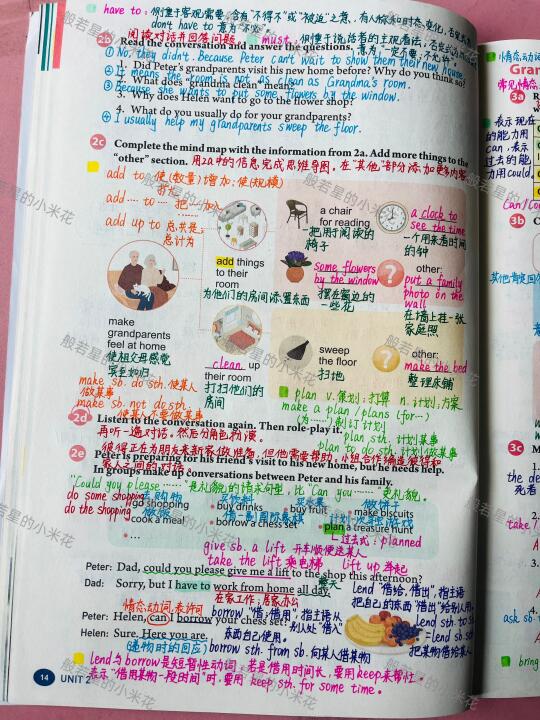 have to: 侧重于客观需要,含有"不得不"或"被迫"之意,有人称和时态变化,
don't have to 意为"不必"
must: 侧重于说话者的主观看法,
意为"一定不要,不允许"。
阅读对话并回答问题
2b Read the conversation and answer the questions.
① No, they didn't. Because Peter can't wait to show them their new house.
1. Did Peter's grandparents visit his new home before? Why do you think so?
② It means the room is not as clean as Grandma's room.
2. What does "grandma clean" mean?
③ Because she wants to put some flowers by the window.
3. Why does Helen want to go to the flower shop?
4. What do you usually do for your grandparents?
④ I usually help my grandparents sweep the floor.
2c Complete the mind map with the information from 2a. Add more things to the
"other" section. 用2a中的信息完成思维导图。在"其他"部分添加更多内容
add to 使(数量)增加;使(规模)
扩大
add … to … 把…加入…
add up to 总共是;
总计为
a chair
for reading
把用于阅读的
椅子
a clock to
see the time
一个用来看时间
的钟
add things
to their
room
为他们的房间添置东西
some flowers
by the window
摆在窗边的
一些花
other:
put a family
photo on the
wall
在墙上挂一张
家庭照
make
grandparents
feel at home
使祖父母感觉
宾至如归
clean up
their room
打扫他们的
房间
sweep
the floor
扫地
other:
make the bed
整理床铺
make sb. do sth. 使某人
做某事
make sb. not do sth.
使某人不要做某事
plan v. 策划;打算 n. 计划;方案
make a plan / plans (for…)
(为……)制订计划
plan sth. 计划某事
plan to do sth. 计划做某事
2d Listen to the conversation again. Then role-play it.
再听一遍对话。然后分角色扮演。
彼得正在为朋友来新家做准备,但他需要帮助。小组合作编造彼得和
家人之间的对话。
2e Peter is preparing for his friend's visit to his new home, but he needs help.
In groups make up conversations between Peter and his family.
"Could you please ……" 是礼貌的请求句型,比 "Can you ……" 更礼貌。
do some shopping
do the shopping
去购物
go shopping
买饮料
buy drinks
买水果
buy fruit
做饼干
make biscuits
做饭
cook a meal
借一副国际象棋
borrow a chess set
计划一次寻宝游戏
plan a treasure hunt
…
过去式: planned
give sb. a lift 开车顺便送某人
take the lift 乘电梯 lift up 举起
Peter: Dad, could you please give me a lift to the shop this afternoon?
Dad: Sorry, but I have to work from home all day.
整天
在家工作;居家办公
情态动词,表许可
Peter: Helen, can I borrow your chess set?
Helen: Sure. Here you are.
(递物时的回应)
borrow "借;借用",指主语从
别人处"借入"
东西自己使用。
borrow sth. from sb. 向某人借某物
lend "借给,借出",指主语
把自己的东西"借出"给别人用。
lend sth. to sb.
= lend sb. sth.
把某物借给某人
lend与borrow是短暂性动词,若是借用时间长,要用keep来替代。
表示"借用某物一段时间"时,要用 keep sth. for some time.
14
UNIT 2
情态动词
3a
表示现在
的能力用
can,表示
过去的能
力用could.
3b
3c
般若星的小米花